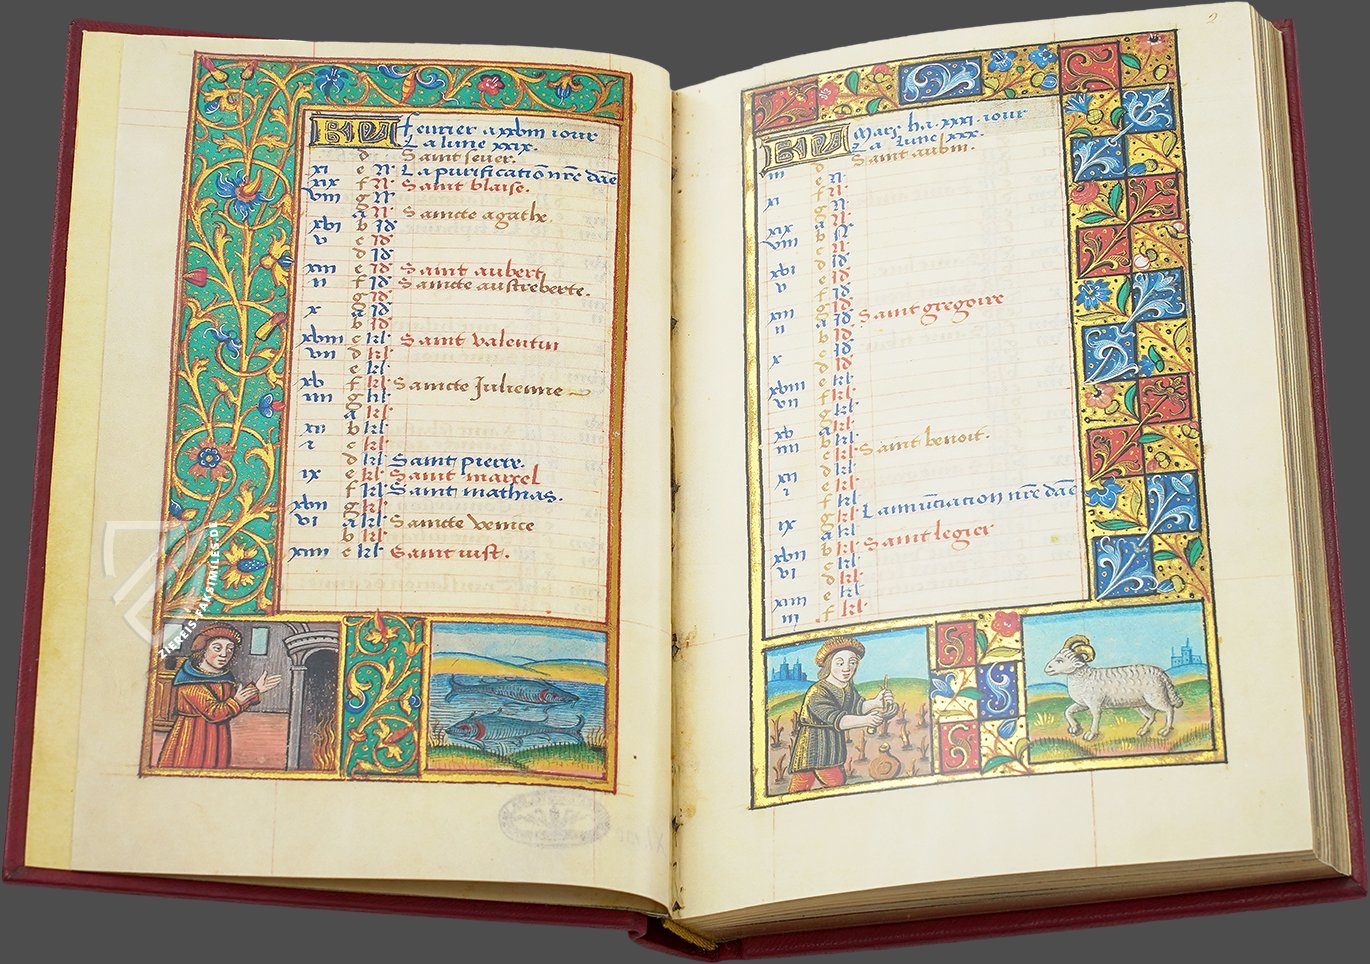 KL feurier a xxviii iour
La lune xxix.
d Saint seuer.
xi e N' La purification nr̃e dãe
xix f N' Saint blaise.
viii g N'
a N' Sancte agathe.
xvi b Id'
v c Id'
d Id'
xiii e Id' Saint aubert
ii f Id' Sancte austreberte.
g Id'
x a Id'
b Id'
xviii c kl' Saint valentin
vii d kl'
e kl'
xv f kl' Sancte Julienne
iiii g kl'
a kl'
xii b kl'
i c kl'
d kl' Saint pierre.
ix e kl' Saint marcel
f kl' Saint mathias.
xvii g kl'
vi a kl' Sancte venice
b kl'
xiiii c kl' Saint iust.
ZIEREIS-FAKSIMILES.DE
2
KL Mars ha .xxxi. iour
La lune xxx.
iii d Saint aubin.
e N'
xi f N'
g N'
xix a N'
viii b N'
c N'
xvi d Id'
v e Id'
f Id'
xiii g Id'
ii a Id' Saint gregoire
b Id'
x c Id'
d Id'
xviii e kl'
vii f kl'
g kl'
xv a kl'
iiii b kl'
c kl' Saint benoit.
xii d kl'
i e kl'
f kl'
ix g kl' Lannũciation nr̃e dãe
a kl'
xvii b kl' Saint legier
vi c kl'
d kl'
xiiii e kl'
iii f kl'